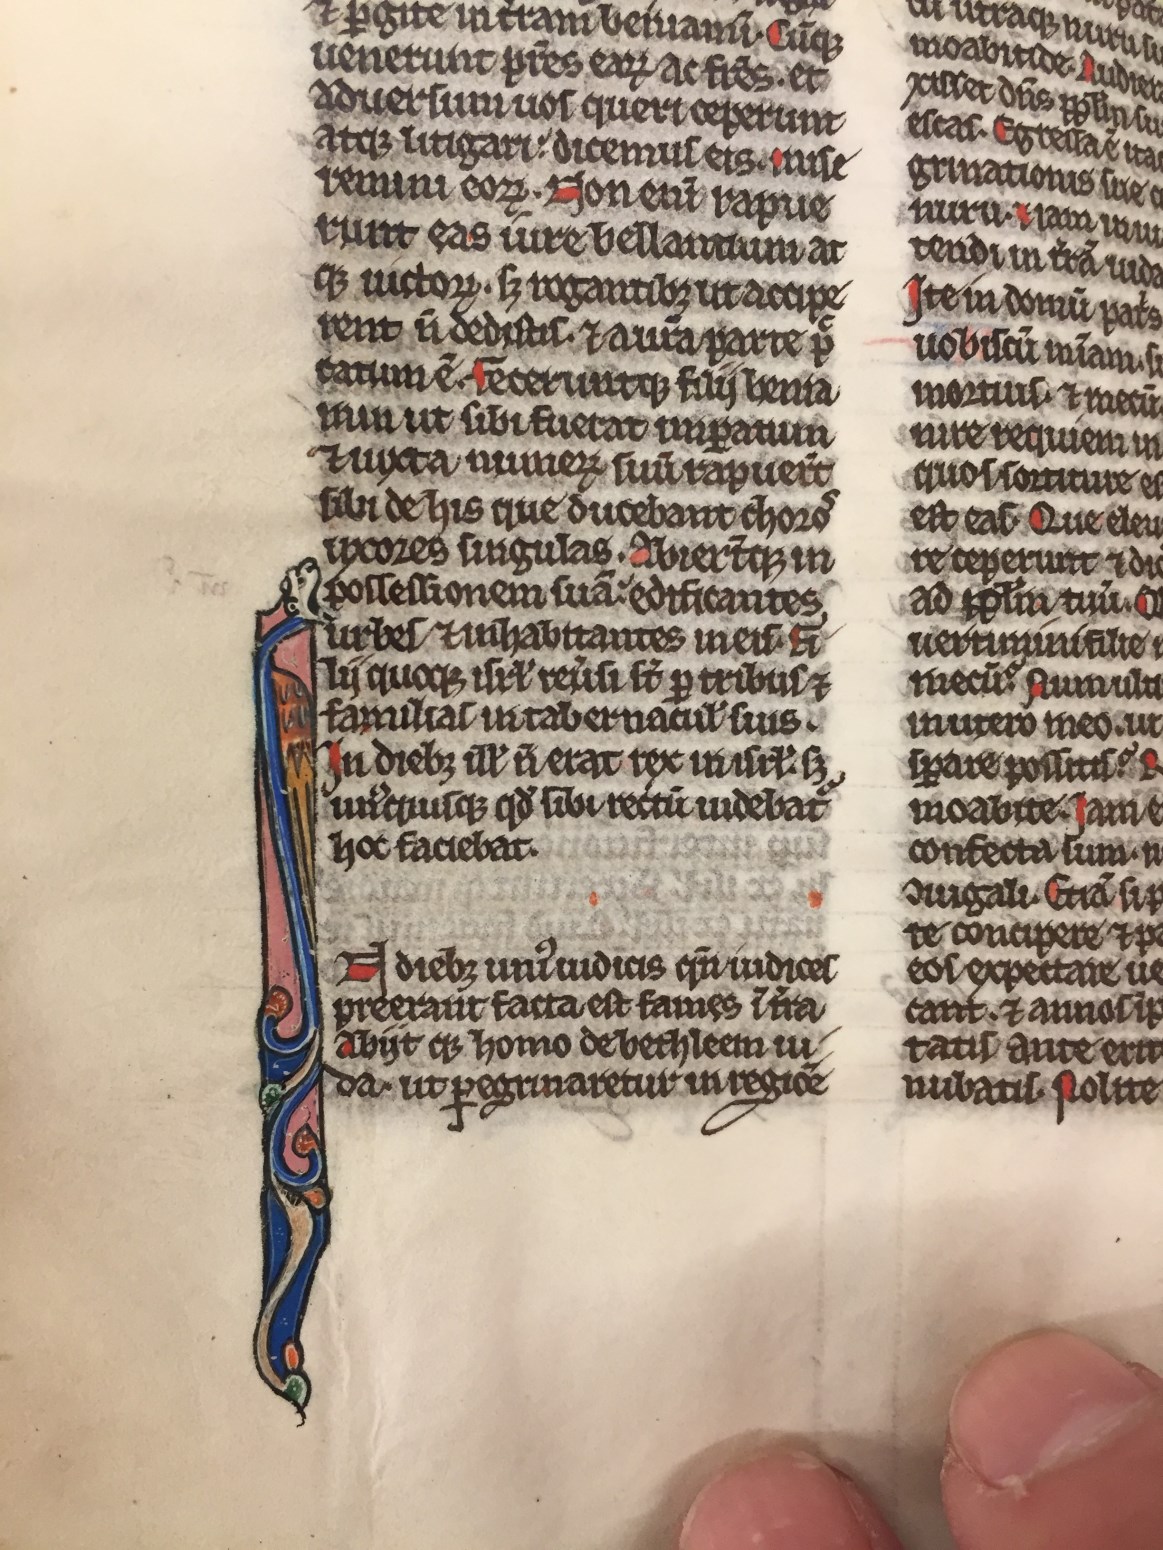 ⁊ ꝑgite in t̄ram beniamī. Cūqꝫ
uenerunt pr̄es earꝝ ac fr̄es. et
aduersum uos queri ceperunt
atqꝫ litigari: dicemus eis. mise
remini eorꝝ. Non enī rapue
runt eas iure bellantium at
qꝫ uictorꝝ. sꝫ rogantibꝫ ut accipe
rent n̄ dedistis. ⁊ a ur̄a parte pc̄
catum ē. Feceruntqꝫ filij benia
min ut sibi fuerat imꝑatum
⁊ iuxta numerꝝ suū rapuer̄t
sibi de his que ducebant choros
uxores singulas. Abier̄tqꝫ in
possessionem suā: edificantes
urbes ⁊ inhabitantes in eis. fi
lij quoqꝫ isrl̄ reu̾si st̄ ꝑ tribus ⁊
familias in tabernacul̾ suis.
In diebꝫ ill̾ n̄ erat rex in isrl̄. sꝫ
unꝰquisqꝫ qd̄ sibi rectū uidebat᷑
hoc faciebat.
N diebꝫ uniꝰ iudicis qn̄ iudices
preerant facta est fames ī t̄ra
Abijt qꝫ homo de bethleem iu
da. ut ꝑegrinaretur in regiōe
moabitide. Audiera
escas. Egressa ē ita
grinationis sue
nuru. ⁊ iam in ui
tendi in t̄rā iuda
Ite in domū
uobiscū mīam.
mortuis. ⁊ mecū
nire requiem in
quos sortiture
est eas. Que eleu
re ceperunt ⁊ di
ad ppl̄m tuū.
uertimini filie
mecū? Num ult
in utero meo. ut
sperare possitis?
moabite. Iam
confecta sum.
iugali. Etiā si
te concipere ⁊
eos expectare ue
cant. ⁊ annos
tatis ante erit
nubatis. Nolite